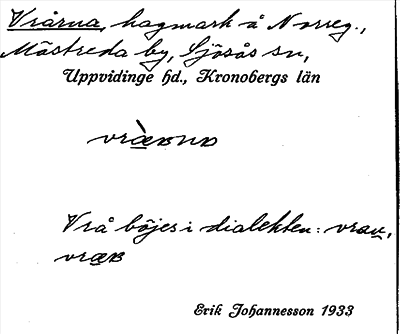 Vråna, hagmark å Norreg.,
Mästreda by, Sjösås sn,
Uppvidinge hd., Kronobergs län
Vrå böjes i dialekten:
Erik Johannesson 1933